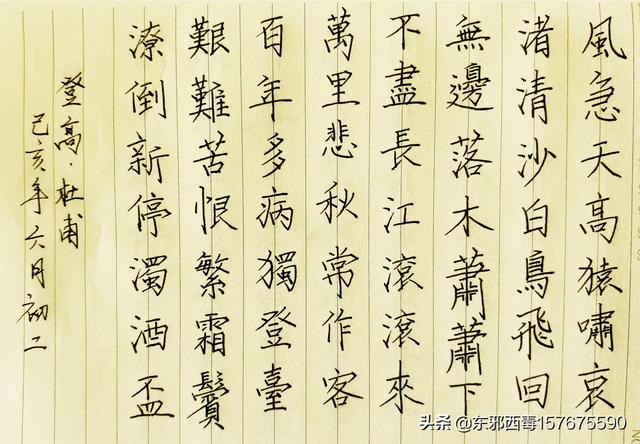 風急天高猿嘯哀
渚清沙白鳥飛回
無邊落木蕭蕭下
不盡長江滾滾來
萬里悲秋常作客
百年多病獨登臺
艱難苦恨繁霜鬢
潦倒新停濁酒盃
登高·杜甫
己亥年六月初二
头条 @东邪西毒157675590